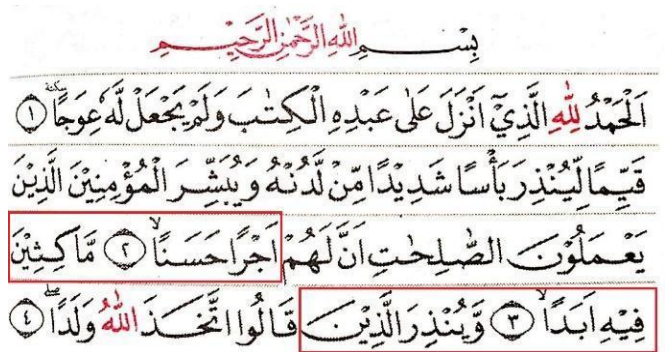 بِسْمِ اللهِ الرَّحْمٰنِ الرَّحِيْمِ
اَلْحَمْدُ لِلّٰهِ الَّذِيْٓ اَنْزَلَ عَلٰى عَبْدِهِ الْكِتٰبَ وَلَمْ يَجْعَلْ لَّهٗ عِوَجًا ۜ ١
قَيِّمًا لِّيُنْذِرَ بَأْسًا شَدِيْدًا مِّنْ لَّدُنْهُ وَيُبَشِّرَ الْمُؤْمِنِيْنَ الَّذِيْنَ
يَعْمَلُوْنَ الصّٰلِحٰتِ اَنَّ لَهُمْ اَجْرًا حَسَنًا ۙ ٢ مَّاكِثِيْنَ
فِيْهِ اَبَدًا ۙ ٣ وَّيُنْذِرَ الَّذِيْنَ قَالُوا اتَّخَذَ اللّٰهُ وَلَدًا ۖ ٤